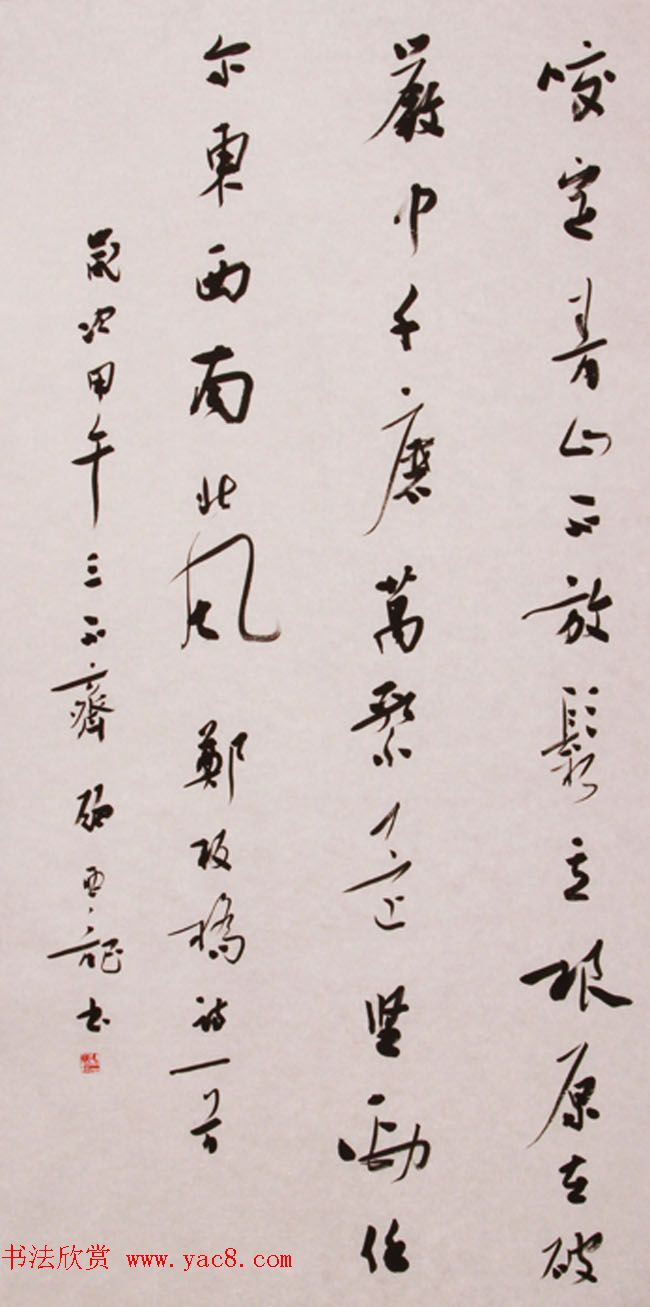 咬定青山不放鬆立根原在破
巖中千磨萬擊還坚勁任
尔東西南北風 鄭板橋詩一首
歲次甲午三不齋顧亞龍书
书法欣赏 www.yac8.com